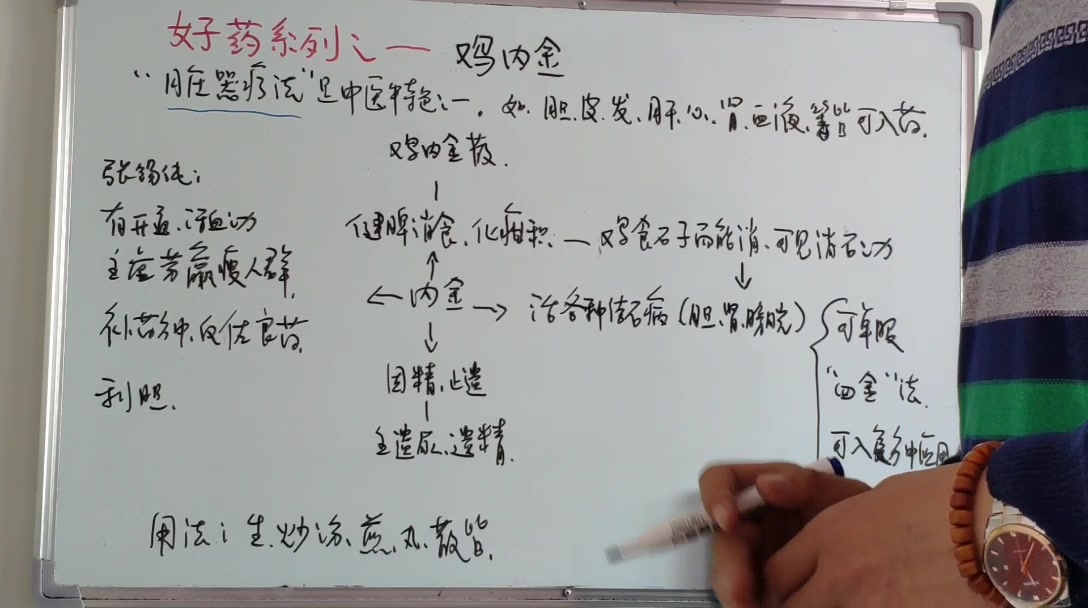 好药系列之一 鸡内金
“脏器疗法”是中医特色之一。如胆、皮、发、肝、心、肾、血液、等皆可入药。
鸡内金散.
张锡纯:
有开盖、活血功
主虚劳羸瘦人群
补药方中、反佐良药
利胆.
健脾消食、化疳积 — 鸡食石子而能消、可见消石功
内金
治各种结石病(胆、肾、膀胱)
可单服
“四金”法.
可入复方中应用
固精、止遗
主遗尿、遗精.
用法: 生、炒 汤、煎、丸、散皆